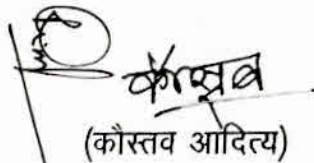 कौस्तव
(कौस्तव आदित्य)